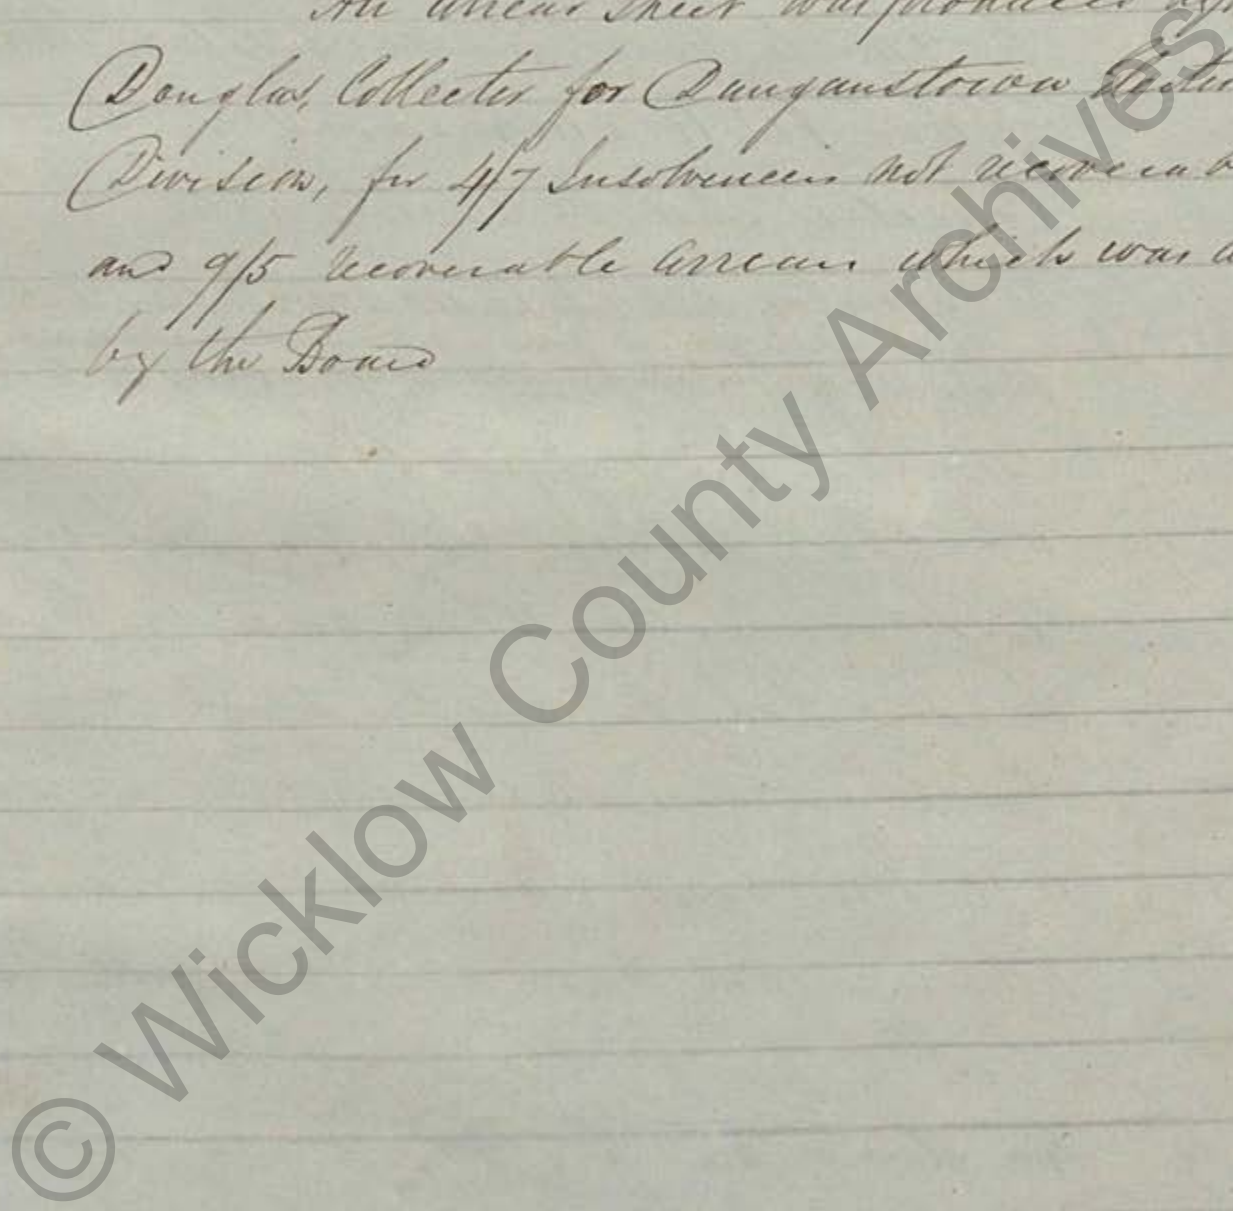 An arrear sheet was produced
Douglas, Collector for Dunganstown
Division, for 4/7 Insolvencies not
and 9/5 recoverable arrears which was
by the Board
© Wicklow County Archives